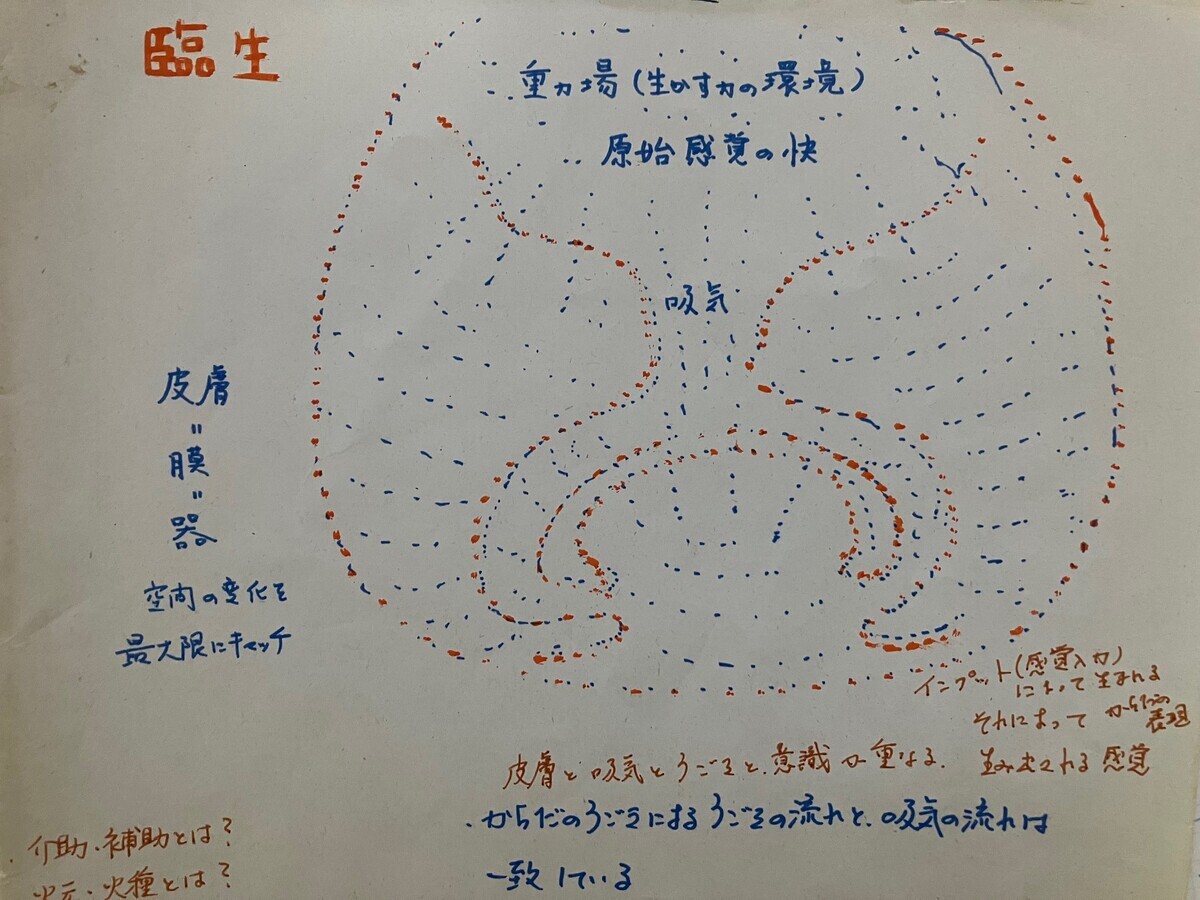 臨生
重力場(生かす力の環境)
原始感覚の快
吸気
皮膚
=
膜
=
器。
空間の変化を
最大限にキャッチ
インプット(感覚入力)
によって生まれる
それによって からだの
表現
皮膚と吸気とうごきと、意識が重なる. 生み出される感覚
・からだのうごきによるうごきの流れと、吸気の流れは
一致している
・介助・補助とは?
火元・火種とは?